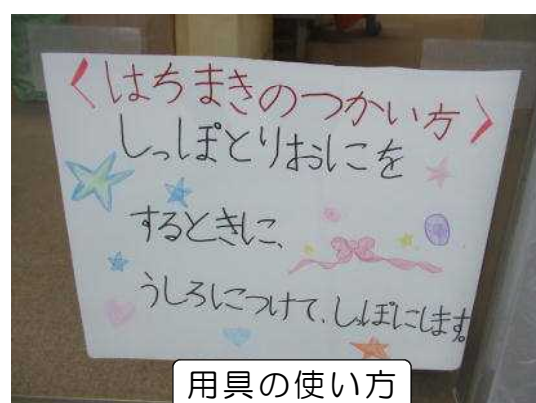 <はちまきのつかい方>
しっぽとりおにを
するときに、
うしろにつけて、しっぽにします。
用具の使い方